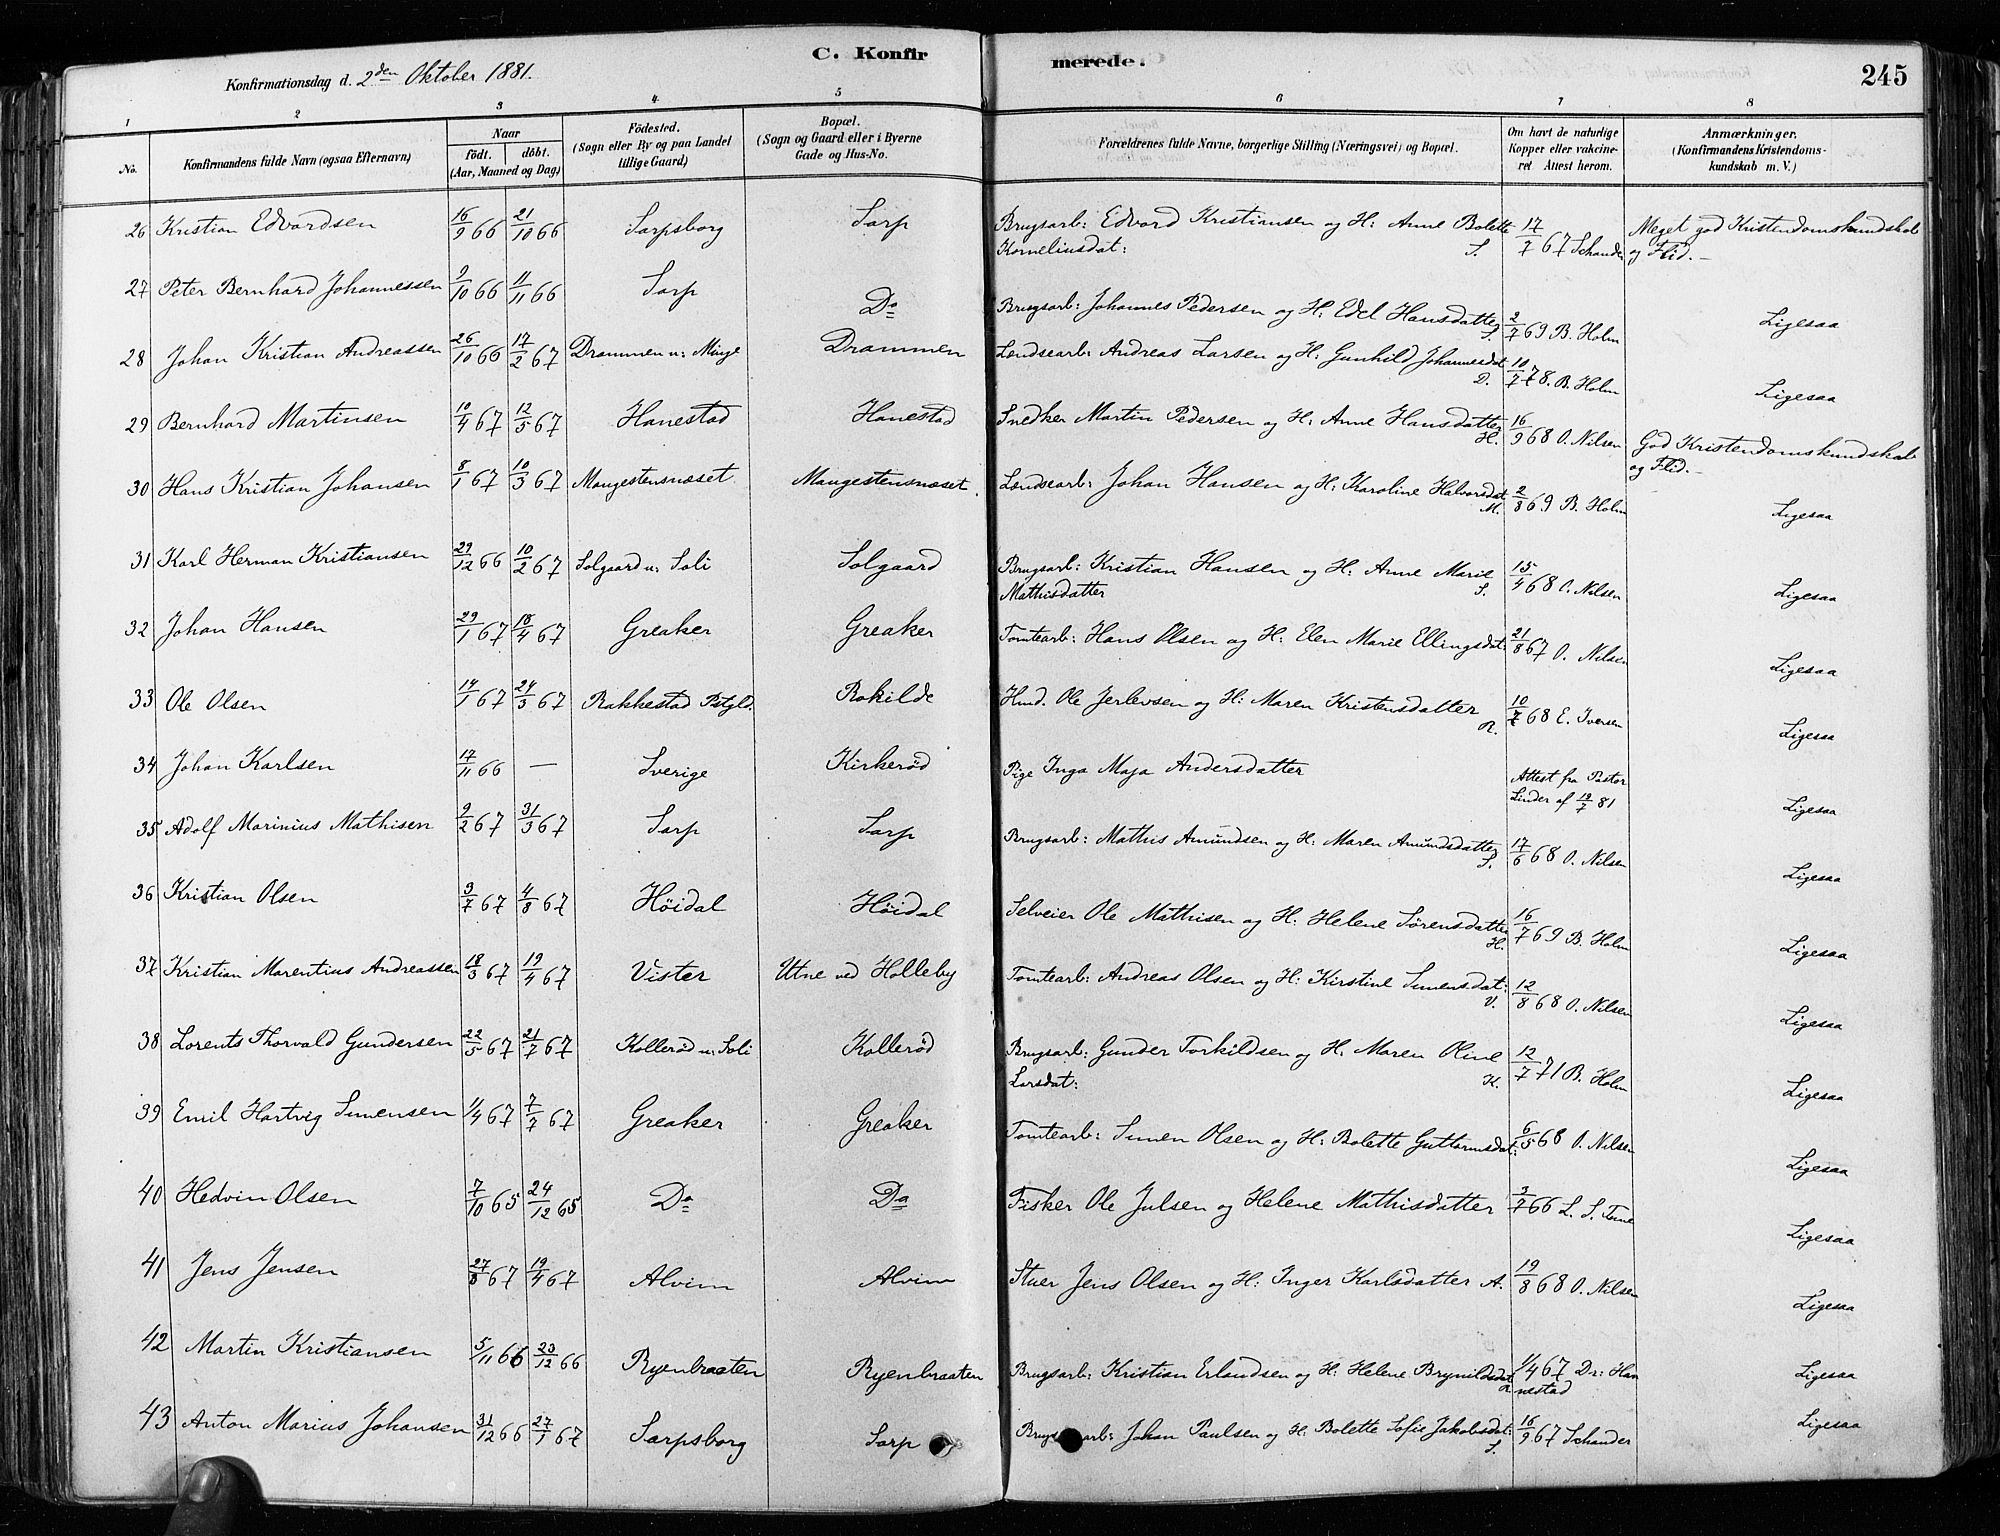 C. Konfir
merede.
245
Konfirmationsdag d. 2den Oktober 1881.
1 2 3 4 5 6 7 8
No.
Konfirmandens fulde Navn (ogsaa Efternavn)
Naar
födt. döbt.
(Aar, Maaned og Dag)
Födested.
(Sogn eller By og paa Landet
tillige Gaard)
Bopæl.
(Sogn og Gaard eller i Byerne
Gade og Hus-No.
Forældrenes fulde Navne, borgerlige Stilling (Næringsvei) og Bopæl.
Om havt de naturlige
Kopper eller vakcine-
ret Attest herom.
Anmærkninger.
(Konfirmandens Kristendoms-
kundskab m. V.)
26 Kristian Edvardsen 16/9 66 21/10 66 Sarpsborg Sarp Brugsarb: Edvard Kristiansen og H: Anne Bolette 17/7 67 Schander Meget god Kristendomskundskab
Korneliusdat: S. og Flid.-
27 Peter Bernhard Johannessen 9/10 66 11/11 66 Sarp Do Brugsarb: Johannes Pedersen og H: Edel Hansdatter S. 2/7 69 B. Holm Ligesaa
28 Johan Kristian Andreassen 26/10 66 17/2 67 Drammen u: Minge Drammen Lændsearb: Andreas Larsen og H: Gunhild Johannesdat D. 10/7 78. B. Holm Ligesaa
29 Bernhard Martinsen 10/4 67 12/5 67 Hanestad Hanestad Snedker Martin Pedersen og H: Anne Hansdatter H. 16/9 68 O. Nilsen God Kristendomskundskab
og Flid.-
30 Hans Kristian Johansen 8/1 67 10/3 67 Maugestensnæset Maugestensnæset. Lændsearb: Johan Hansen og H: Karoline Halvorsdat M. 2/8 69 B. Holm Ligesaa
31 Karl Herman Kristiansen 29/12 66 10/2 67 Solgaard u: Soli Solgaard Brugsarb: Kristian Hansen og H: Anne Marie 15/4 68 O. Nilsen Ligesaa
Mathisdatter S.
32 Johan Hansen 29/1 67 18/4 67 Greaker Greaker Tomtearb: Hans Olsen og H: Elen Marie Ellingsdat: 21/8 67 O. Nilsen Ligesaa
33 Ole Olsen 14/1 67 24/3 67 Rakkestad Pstgld. Rokilde Hmd. Ole Jerlevsen og H: Maren Kristensdatter R. 10/7 68 E. Iversen Ligesaa
34 Johan Karlsen 17/11 66 — Sverige Kirkerød Pige Inga Maja Andersdatter Attest fra Pastor
Linder af 19/7 81 Ligesaa
35 Adolf Marinius Mathisen 9/2 67 31/3 67 Sarp Sarp Brugsarb: Mathis Amundsen og H: Maren Amundsdatter S. 17/6 68 O. Nilsen Ligesaa
36 Kristian Olsen 3/7 67 4/8 67 Höidal Höidal Selveier Ole Mathisen og H: Helene Sørensdatter H. 16/7 69 B. Holm Ligesaa
37 Kristian Marentius Andreassen 18/3 67 19/4 67 Vister Utne ved Holleby Tomtearb: Andreas Olsen og H: Kirstine Simensdat: V. 12/8 68 O. Nilsen Ligesaa
38 Lorents Thorvald Gundersen 22/5 67 21/7 67 Kollerød u: Soli Kollerød Brugsarb: Gunder Torkildsen og H: Maren Oline 12/7 71 B. Holm Ligesaa
Larsdat: K.
39 Emil Hartvig Simensen 1/4 67 7/7 67 Greaker Greaker Tomtearb: Simen Olsen og H: Bolette Guttormsdat: 6/5 68 O. Nilsen Ligesaa
40 Hedvin Olsen 7/10 65 24/12 65 Do Do Fisker Ole Julsen og Helene Mathisdatter 3/7 66 L. S. Ligesaa
41 Jens Jensen 27/8 67 19/4 67 Alvim Alvim Stuer Jens Olsen og H: Inger Karlsdatter A. 19/8 68 O. Nilsen Ligesaa
42 Martin Kristiansen 5/11 66 23/12 66 Ryenbraaten Ryenbraaten Brugsarb: Kristian Erlandsen og H: Helene Brynildsdat R. 1/4 67 Dr: Han
nestad Ligesaa
43 Anton Marius Johansen 31/12 66 27/1 67 Sarpsborg Sarp Brugsarb: Johan Paulsen og H. Bolette Sofie Jakobsdat: S. 16/9 67 Schander Ligesaa